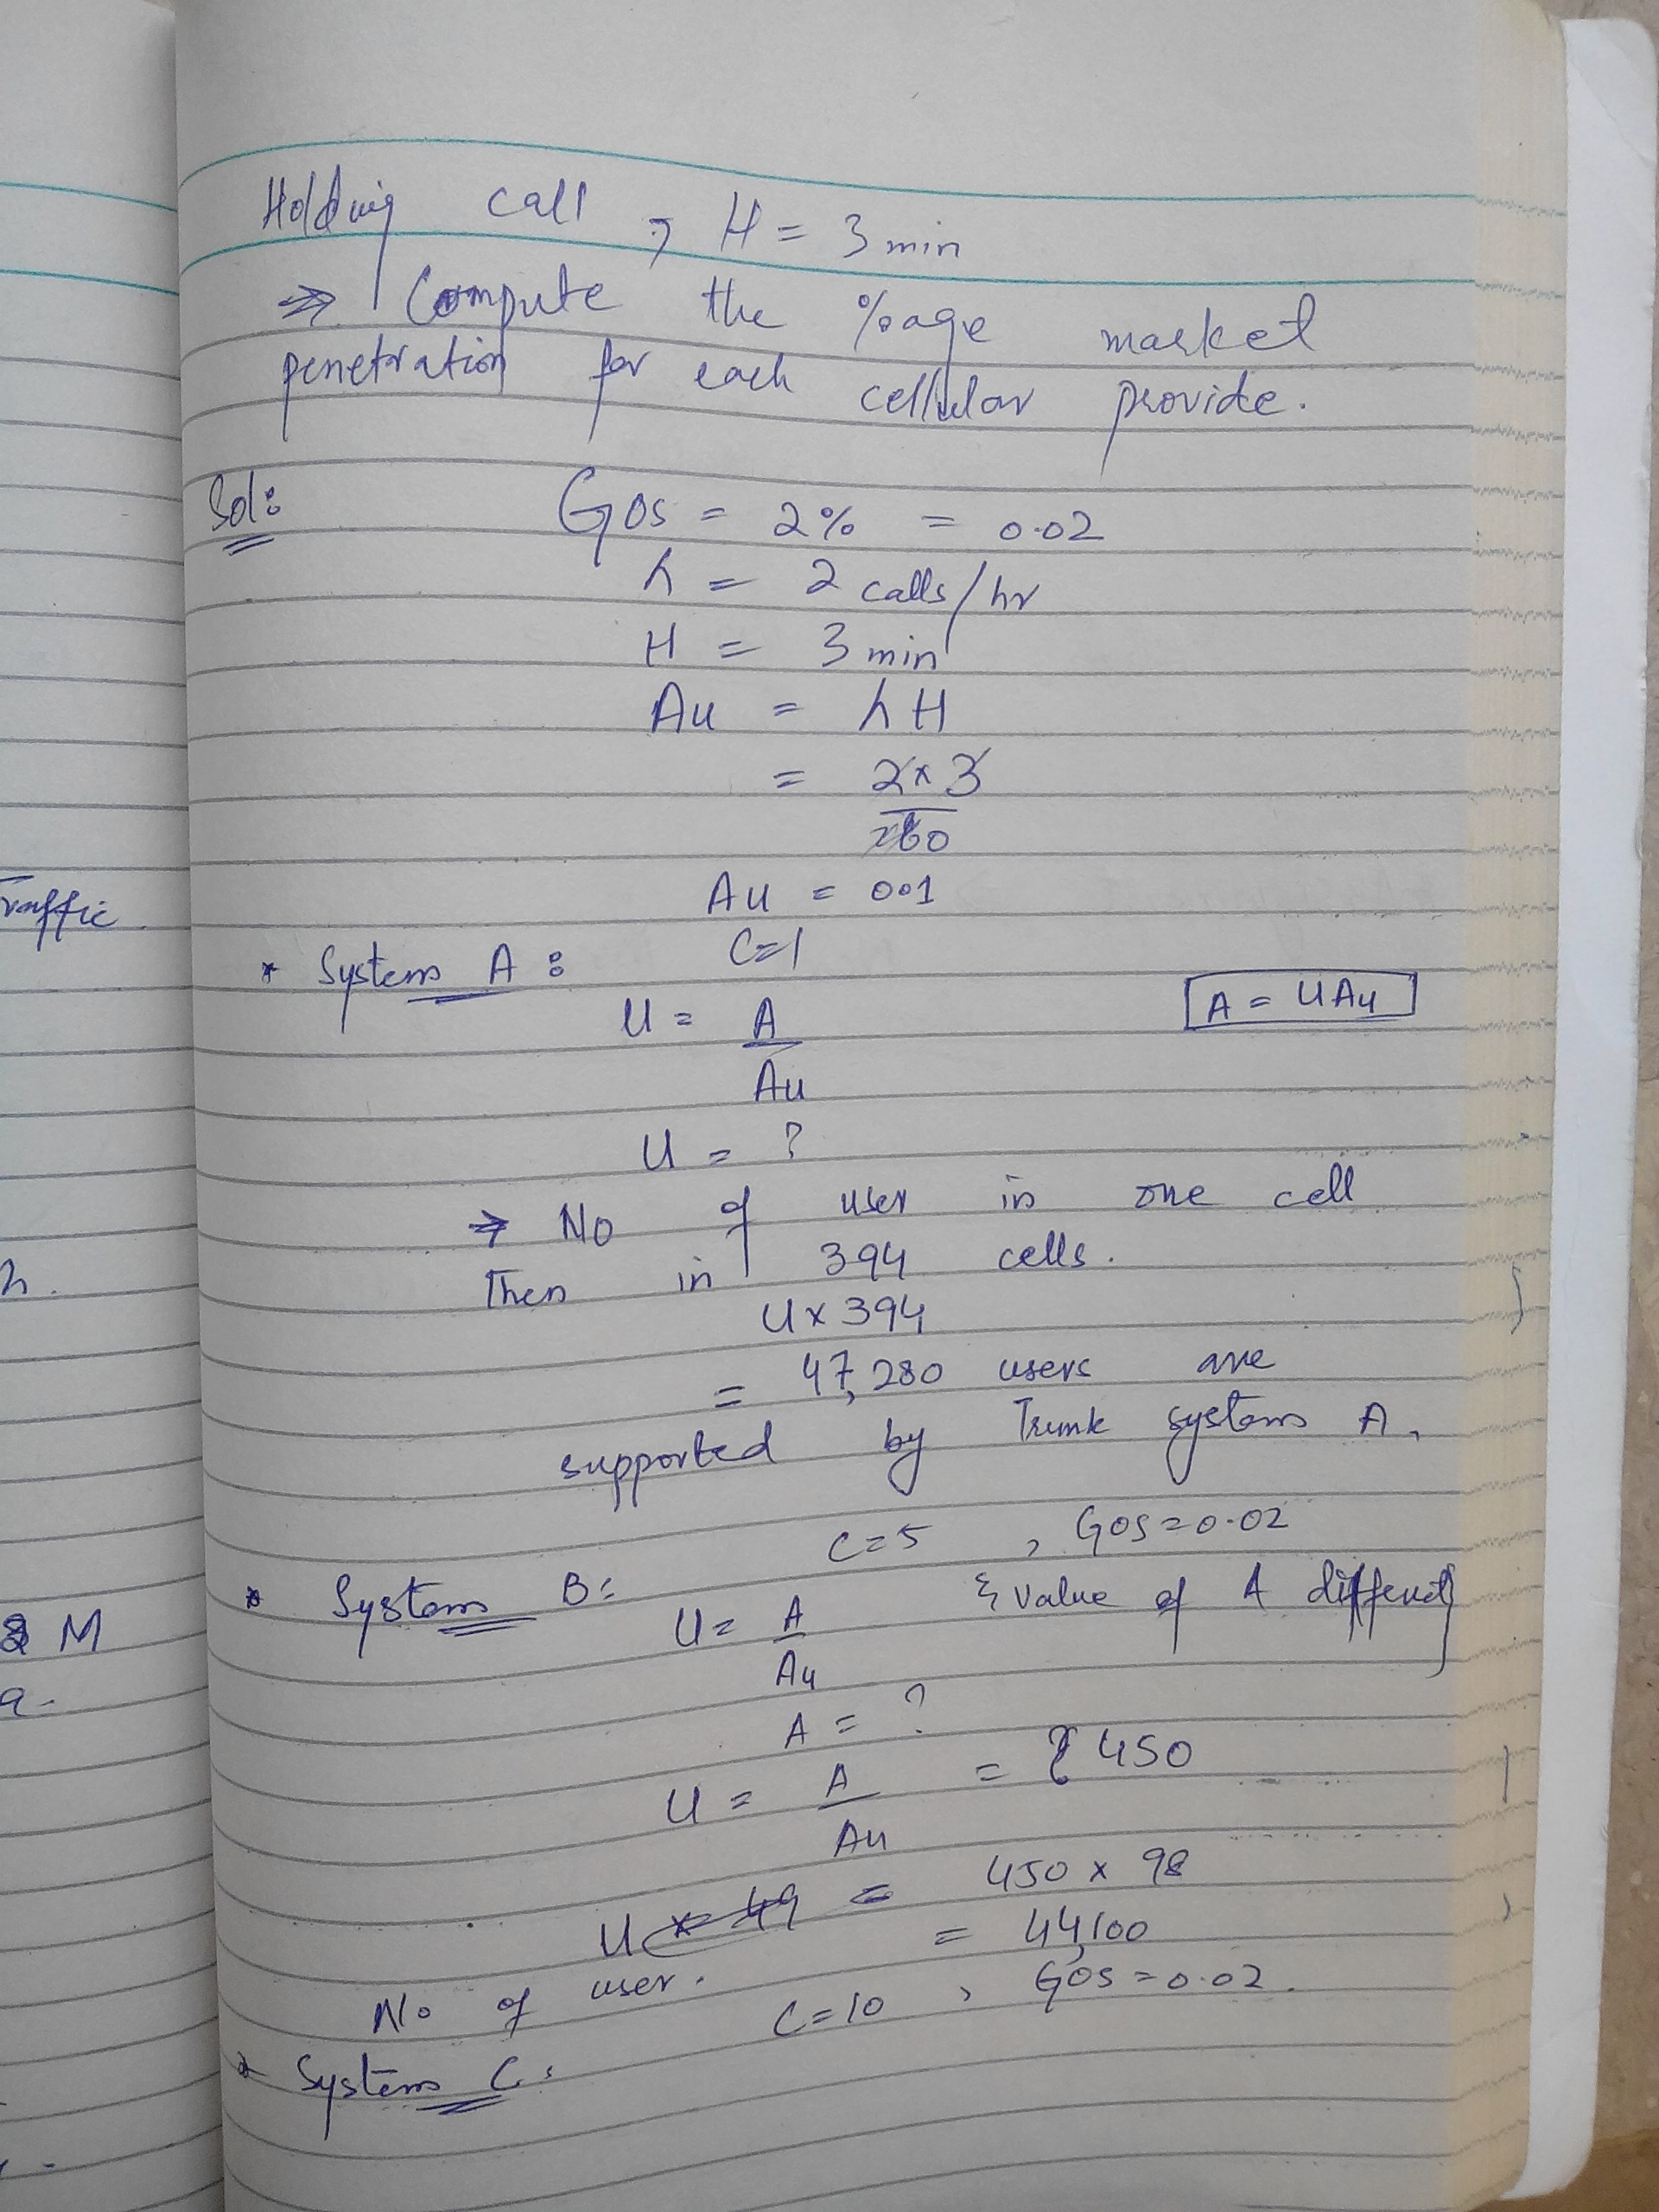 Holding call , H = 3 min
⇒ Compute the %age market
penetration for each cellular provide.
Sol:
GOS = 2% = 0.02
λ = 2 calls/hr
H = 3 min
Au = λH
= 2 x 3
60
Au = 0.1
* System A : C=1
U = A
Au
A = UAu
U = ?
→ No of user in one cell
Then in 394 cells.
U x 394
= 47,280 users are
supported by Trunk system A.
C=5 , GOS=0.02
* System B:
U = A
Au
{ value of A different }
A = ?
U = A = 450
Au
U x 49 = 450 x 98
= 44,100
No of user.
C=10 , GOS=0.02.
* System C:
Traffic
h.
M
a.